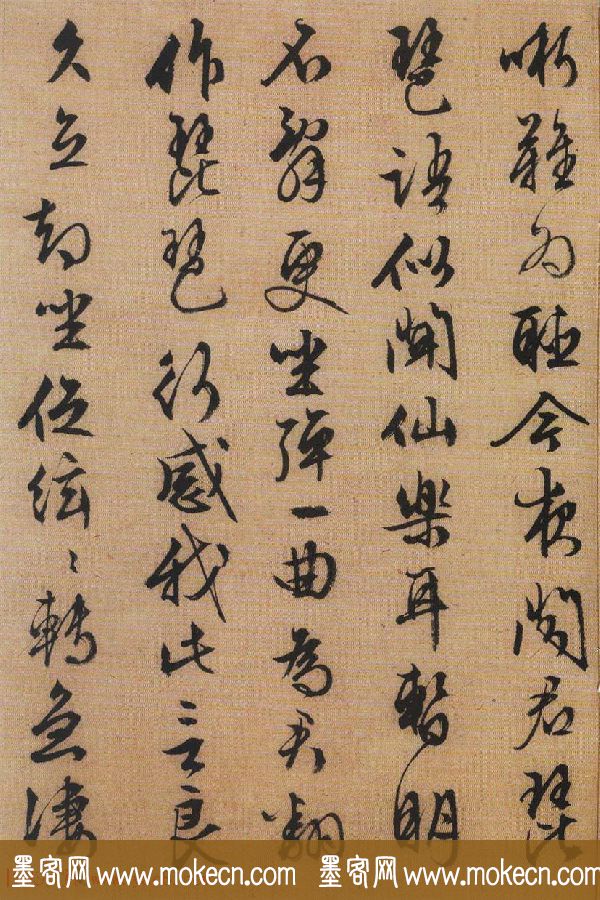 哳難为聽今夜聞君琵
琶語似聞仙樂耳暫明
辭更坐彈一曲為君翻
作琵琶行感我此言良
久立却坐促絃〻轉急淒
墨客网 www.mokecn.com 墨客网 www.mokecn.com